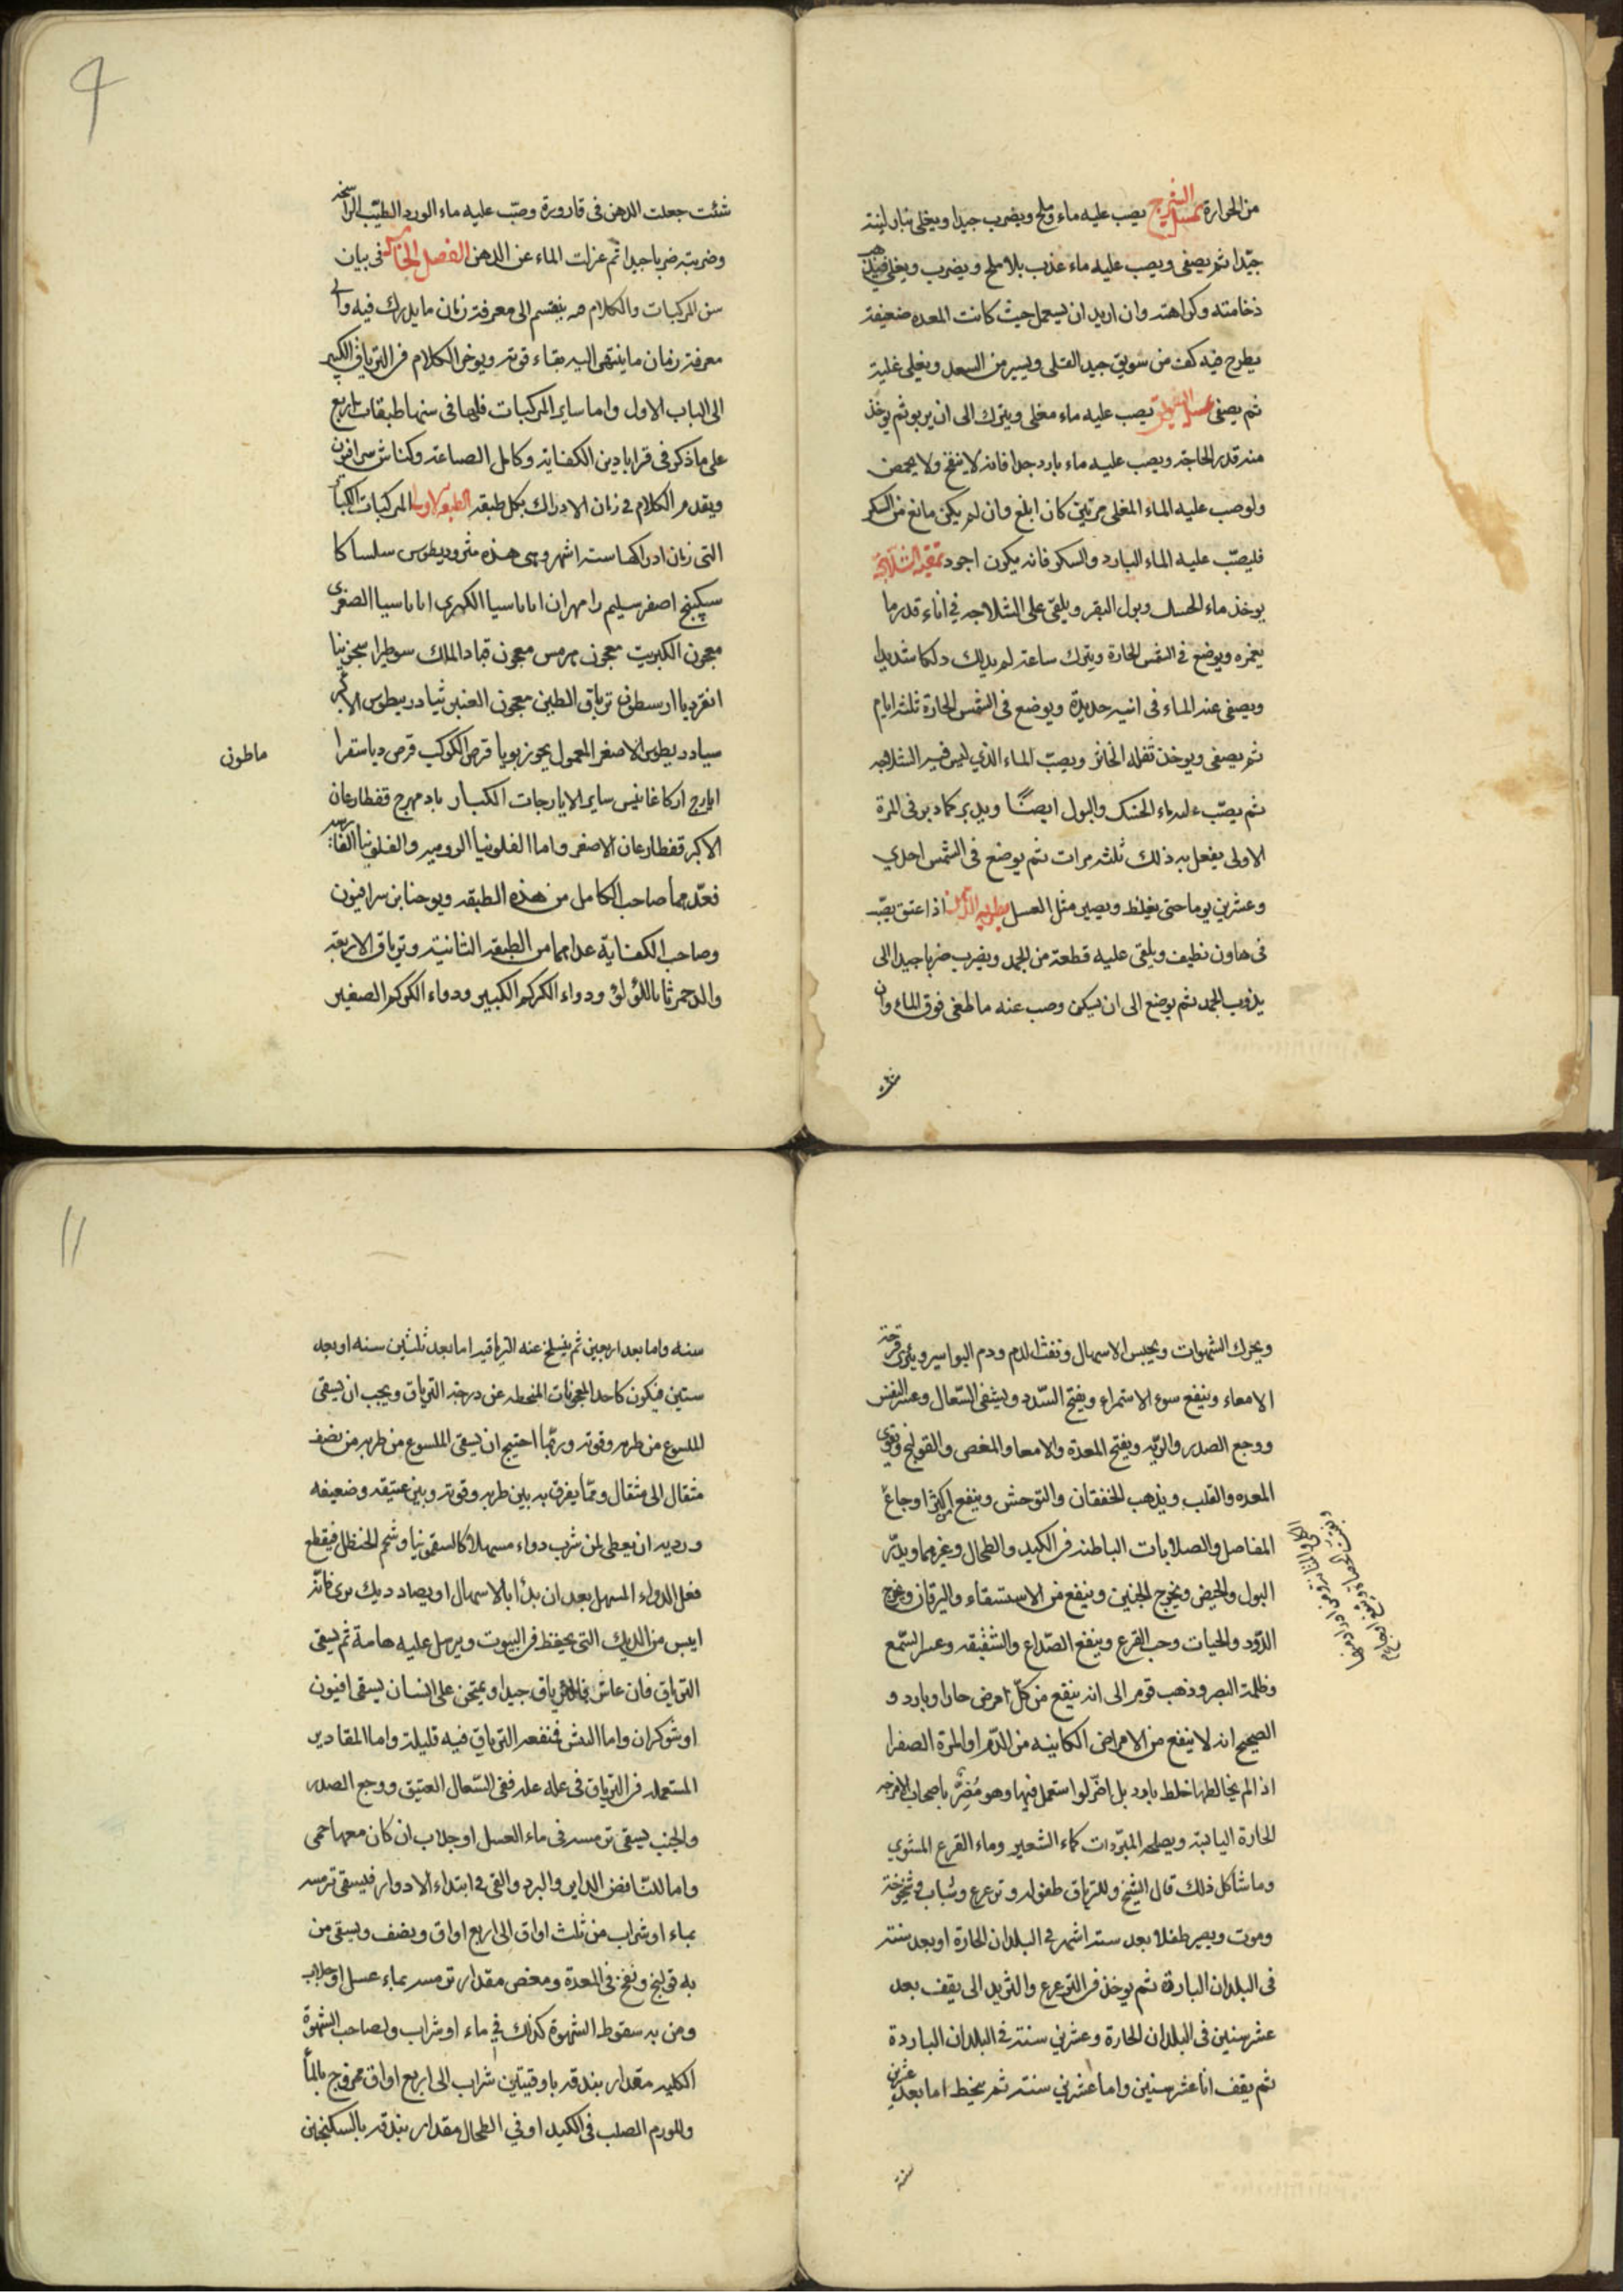 من الحرارة غسل الشيرج يصب عليه ماء وملح ويضرب جيدا ويغلى بنار لينة
جيّدا ثم يصفى ويصب عليه ماء عذب بلا ملح ويضرب ويغلى فيذهب
زخامته وكراهته وان اريد ان يستعمل حيث كانت المعده ضعيفة
يطرح فيه كف من سويق جيد القلى ويسير من السعد ويغلى غلية
ثم يصفى غسل السويق يصب عليه ماء مغلى ويترك الى ان يربو ثم يوخذ
منه قدر الحاجة ويصب عليه ماء بارد جدا فانه لا ينفخ ولا يحمض
ولو صب عليه الماء المغلى مرتين كان ابلغ وان لم يكن مانع من السكر
فليصبّ عليه الماء البارد والسكر فانه يكون اجود
يوخذ ماء الحسك وبول البقر ويلقى على الشلاجه فى اناء قدر ما
يغمره ويوضع فى الشمس الحارة ويترك ساعة ثم يدلك دلكا شديدا
ويصفى عنه الماء فى انيه حديدة ويوضع فى الشمس الحارة ثلثه ايام
ثم يصفى ويوخذ ثفله الخاثر ويصبّ الماء الذي ليس فيه الشلاجه
ثم يصبّ عليه ماء الحسك والبول ايضًا ويدبر كما دبر فى المرة
الاولى يفعل به ذلك ثلثه مرات ثم يوضع فى الشمس احدي
وعشرين يوما حتى يغلظ ويصير مثل العسل تطرية الدهن اذا عتق يصبّ
فى هاون نظيف ويلقى عليه قطعة من الجمد ويضرب ضربا جيدا الى
يذوب الجمد ثم يوضع الى ان يسكن وصب عنه ما طفى فوق الماء وان
شئت
شئت جعلت الدهن فى قارورة وصبّ عليه ماء الورد الطيّب الرائحه
وضربته ضربا جيدا ثم عزلت الماء عن الدهن الفصل الخامس فى بيان
سن المركبات والكلام فيه ينقسم الى معرفة زمان ما يدرك فيه والى
معرفة زمان ما ينتهى اليه بقاء قوته ويوخر الكلام فى الترياق الكبير
الى الباب الاول واما ساير المركبات فلها فى سنها طبقات اربع
على ما ذكر فى قرابادين الكفاية وكامل الصناعة وكناش سرافيون
ويقدم الكلام فى زمان الادراك بكل طبقه الطبقه الاولى المركبات الكبار
التى زمان ادراكها سته اشهر وهى هذه مثروديطوس سلساكا
سكبينج اصفر سليم رامهران اناناسيا الكبرى اناناسيا الصغرى
معجون الكبريت معجون هرمس معجون قباد الملك سوطيرا سجزنيا
انقرديا ارسطون ترياق الطين معجون العنبر ثيادريطوس الاكبر
ثيادريطوس الاصغر المعمول بجوزبويا قرص الكوكب قرص دياسقرا
ماطون
ايارج اركاغانيس ساير الايارجات الكبار بادمهرج قفطارغان
الاكبر قفطارغان الاصغر واما الفلونيا الروميه والفلونيا الفارسيه
فعدّهما صاحب الكامل من هذه الطبقه ويوحنا بن سرافيون
وصاحب الكفاية عداهما من الطبقه الثانية وترياق الاربعه
والدحمرثا باللؤلؤ ودواء الكركم الكبير ودواء الكركم الصغير
ويحرك الشهوات ويحبس الاسهال ونفث الدم ودم البواسير ويبرى قرحة
الامعاء وينفع سوء الاستمراء ويفتح السّدد ويشفى السّعال وعسر النفس
ووجع الصدر والريّه ويفتح المعدة والامعا والمغص والقولنج ويقوى
المعده والقلب ويذهب الخفقان والتوحش وينفع اكثر اوجاع
المفاصل والصلابات الباطنه فى الكبد والطحال وغيرهما ويدرّ
البول والحيض ويخرج الجنين وينفع من الاستسقاء واليرقان ويخرج
الدّود والحيات وحب القرع وينفع الصّداع والشقيقه وعسر السّمع
وظلمة البصر وذهب قوم الى انه ينفع من كلّ مرض حار او بارد و
الصحيح انه لا ينفع من الامراض الكاينه من الدّم او المرة الصفرا
اذا لم يخالطها خلط بارد بل اضرّ لو استعمل فيها وهو مُضِرٌّ باصحاب الامزجه
الحارة اليابسة ويصلحه المبرّدات كماء الشعير وماء القرع المشوي
وما شاكل ذلك قال الشيخ وللترياق طفوله وترعرع وشباب وشيخوخة
وموت ويصير طفلا بعد سته اشهر فى البلدان الحارة او بعد سنته
فى البلدان الباردة ثم يوخذ فى الترعرع والتزيد الى يقف بعد
عشر سنين فى البلدان الحارة وعشرين سنة فى البلدان الباردة
ثم يقف اما عشر سنين واما عشرين سنة ثم ينحط اما بعد عشرين
سنة
سنه واما بعد اربعين ثم ينسلخ عنه الترياقيه اما بعد ثلثين سنه او بعد
ستين فيكون كاحد المعجونات المنحطه عن درجة الترياق ويجب ان يسقى
الملسوع من طريه وقويّه وربّما احتيج ان يسقى الملسوع من طريه من نصف
مثقال الى مثقال وممّا يفرق به بين طريه وقويه وبين عتيقه وضعيفه
ورديه ان يعطى لمن شرب دواء مسهلا كالسقمونيا وشحم الحنظل فيقطع
فعل الدواء المسهل بعد ان بدا بالاسهال او يصاد ديك برى فانّه
ايبس من الديك التى يحفظ فى البيوت ويرسل عليه هامة ثم يسقى
الترياق فان عاش فالترياق جيد او يمتحن على انسان يسقى افيون
او شوكران واما البيش فنفعه الترياق فيه قليلة واما المقادير
المستعمله من الترياق فى عله عله ففى السّعال العتيق ووجع الصدر
والجنب يسقى ترمسه فى ماء العسل او جلاب ان كان معها حمى
واما للنافض الداير والبرد والقى فى ابتداء الادوار فيسقى ترمسه
بماء او شراب من ثلث اواق الى اربع اواق ونصف ويسقى من
به قولنج ونفخ فى المعدة ومغص مقدار ترمسه بماء عسل او جلاب
ومن به سقوط الشهوة كذلك فى ماء او شراب ولصاحب الشهوة
الكلبيه مقدار بندقه باوقيتين شراب الى اربع اواق ممزوج بالماء
وللورم الصلب فى الكبد او فى الطحال مقدار بندقه بالسكنجبين